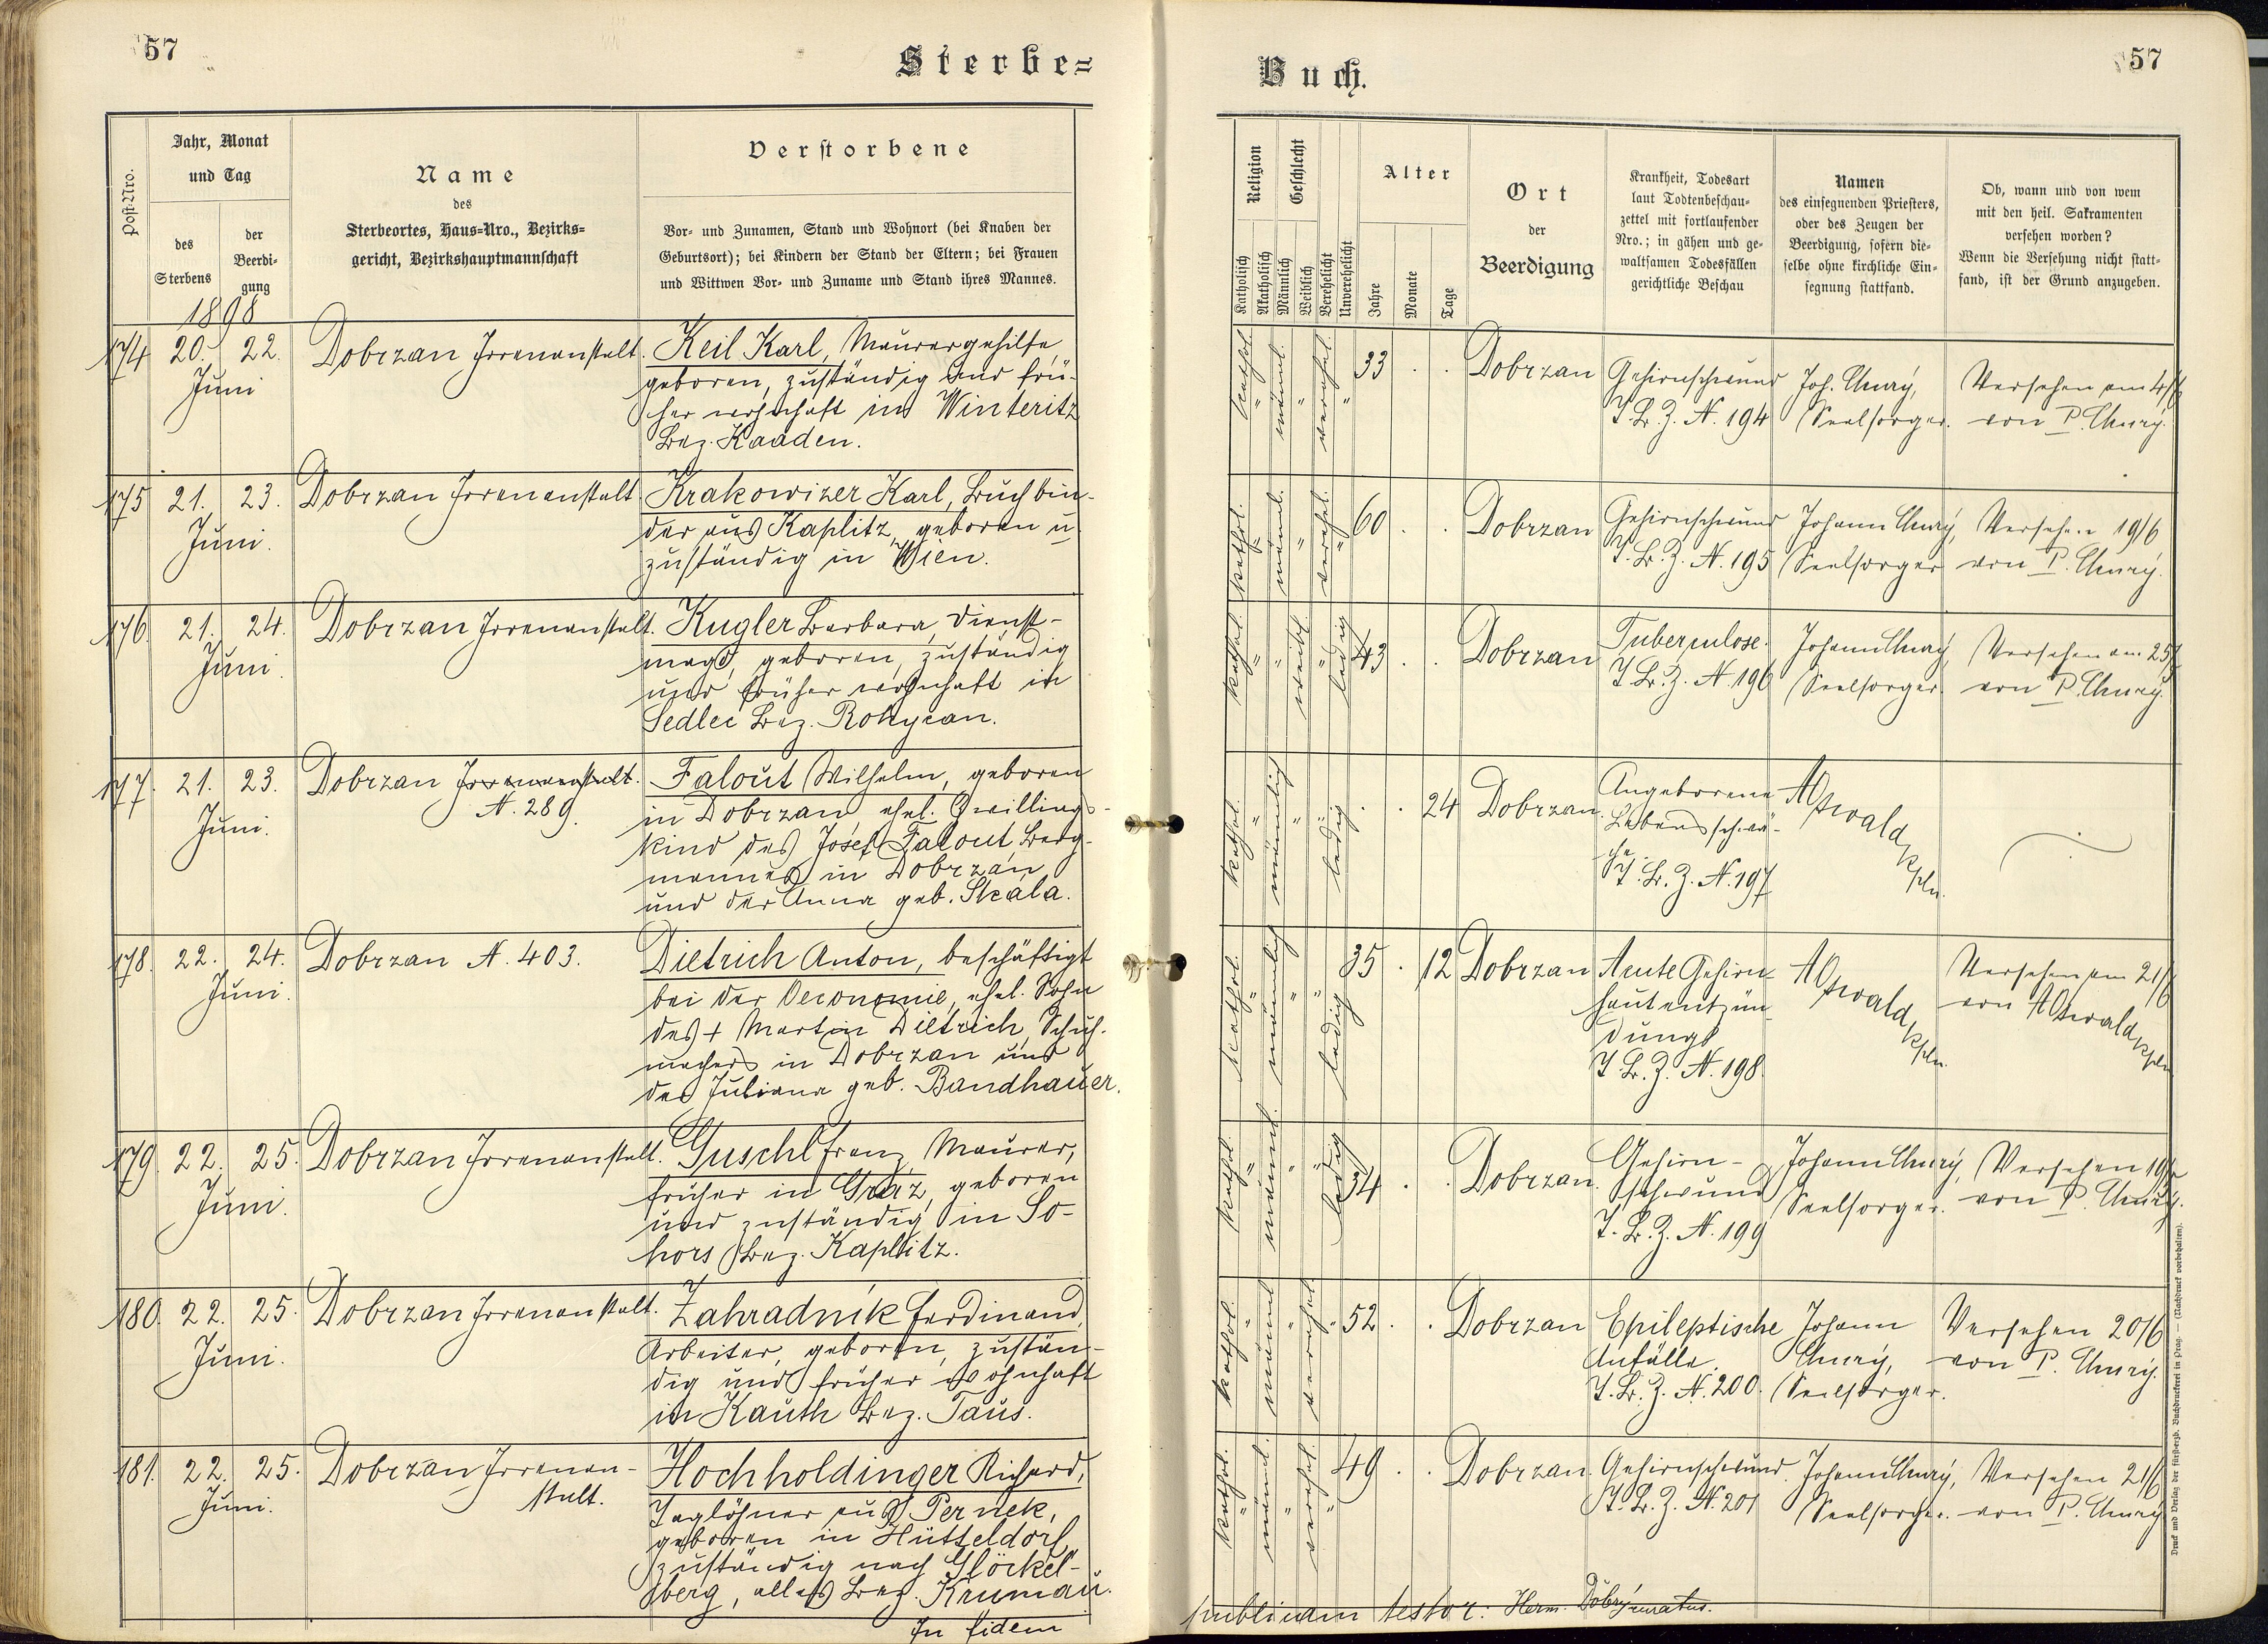 57
Sterbe=
Post-Nro.
Jahr, Monat
und Tag
des
Sterbens
der
Beerdi-
gung
1898
Name
des
Sterbeortes, Haus-Nro., Bezirks-
gericht, Bezirkshauptmannschaft
Verstorbene
Vor- und Zunamen, Stand und Wohnort (bei Knaben der
Geburtsort); bei Kindern der Stand der Eltern; bei Frauen
und Wittwen Vor- und Zuname und Stand ihres Mannes.
174 20. 22. Dobrzan Irrenanstalt. Keil Karl, Maurergehilfe,
Juni geboren, zuständig und frü-
her wohnhaft in Winteritz
Bez. Kaaden.
175 21. 23. Dobrzan Irrenanstalt Krakowizer Karl, Buchbin-
Juni. der aus Kaplitz, geboren u
zuständig in Wien.
176 21. 24. Dobrzan Irrenanstalt. Kugler Barbara, Dienst-
Juni. magd, geboren, zuständig
und früher wohnhaft in
Sedlec Bez. Rokycan.
177. 21. 23. Dobrzan Irrenanstalt. Falout Wilhelm, geboren
N. 289.
Juni. in Dobrzan, ehel. Zwillings-
kind des Josef Falout, Berg-
mannes in Dobrzan
und der Anna geb. Skála.
178. 22. 24. Dobrzan N. 403. Dietrich Anton, beschäftigt
Juni. bei der Oeconomie, ehel. Sohn
des + Martin Dietrich, Schuh-
machers in Dobrzan und
der Juliana geb. Bandhauer.
179. 22. 25. Dobrzan Irrenanstalt. Guschl Franz Maurer,
Juni. früher in Graz, geboren
und zuständig in So-
hors Bez. Kaplitz.
180. 22. 25. Dobrzan Irrenanstalt. Zahradník Ferdinand,
Juni. Arbeiter, geboren, zustän-
dig und früher wohnhaft
in Kauth Bez. Taus.
181. 22. 25. Dobrzan Irrenan- Hochholdinger Richard,
Juni. stalt. Taglöhner aus Pernek,
geboren in Hütteldorf
zuständig nach Glöckel-
berg, alles Bez. Krumau.
In fidem
Buch.
57
Religion
Katholisch
Akatholisch
Geschlecht
Männlich
Weiblich
Verehelicht
Unverehelicht
Alter
Jahre
Monate
Tage
Ort
der
Beerdigung
Krankheit, Todesart
laut Todtenbeschau-
zettel mit fortlaufender
Nro.; in gähen und ge-
waltsamen Todesfällen
gerichtliche Beschau
Namen
des einsegnenden Priesters,
oder des Zeugen der
Beerdigung, sofern die-
selbe ohne kirchliche Ein-
segnung stattfand.
Ob, wann und von wem
mit den heil. Sakramenten
versehen worden?
Wenn die Versehung nicht statt-
fand, ist der Grund anzugeben.
kathol. " männl. " verehel. " 33 . . Dobrzan Gehirnschwund Joh. Versehen am 4/6
T.B.Z. N. 194 Seelsorger. von P.
kathol. " männl. " verehel. " 60 . . Dobrzan Gehirnschwund Johann Versehen 19/6
T.B.Z. N. 195 Seelsorger von P.
kathol. " " weibl. " ledig 43 . . Dobrzan Tuberculose. Johann Versehen am 25/
T.B.Z. N. 196 Seelsorger. von P.
kathol. " männlich " ledig . . 24 Dobrzan. Angeborene
Lebensschwä-
che
T.B.Z. N. 197 Kpln.
kathol. " männlich " " ledig 35 . 12 Dobrzan Acute Gehirn- Versehen am 21/6
hautentzün- von
dung
T.B.Z. N. 198 Kpln. Kpln
kathol. " männl. " " ledig 34 . . Dobrzan. Gehirn- Johann Versehen 19/6
schwund Seelsorger. von P.
T.B.Z. N. 199
kathol. " männl " verehel. " 52 . . Dobrzan Epileptische Johann Versehen 20/6
Anfälle. von P.
T.B.Z. N. 200. Seelsorger.
kathol. " männl. " verehel. " 49 . . Dobrzan. Gehirnschwund. Johann Versehen 21/6
T.B.Z. N. 201 Seelsorger. von P.
publicam testor: Herm. Dobrý curatus.
Druck und Verlag der fürsterzb. Buchdruckerei in Prag. — (Nachdruck vorbehalten).